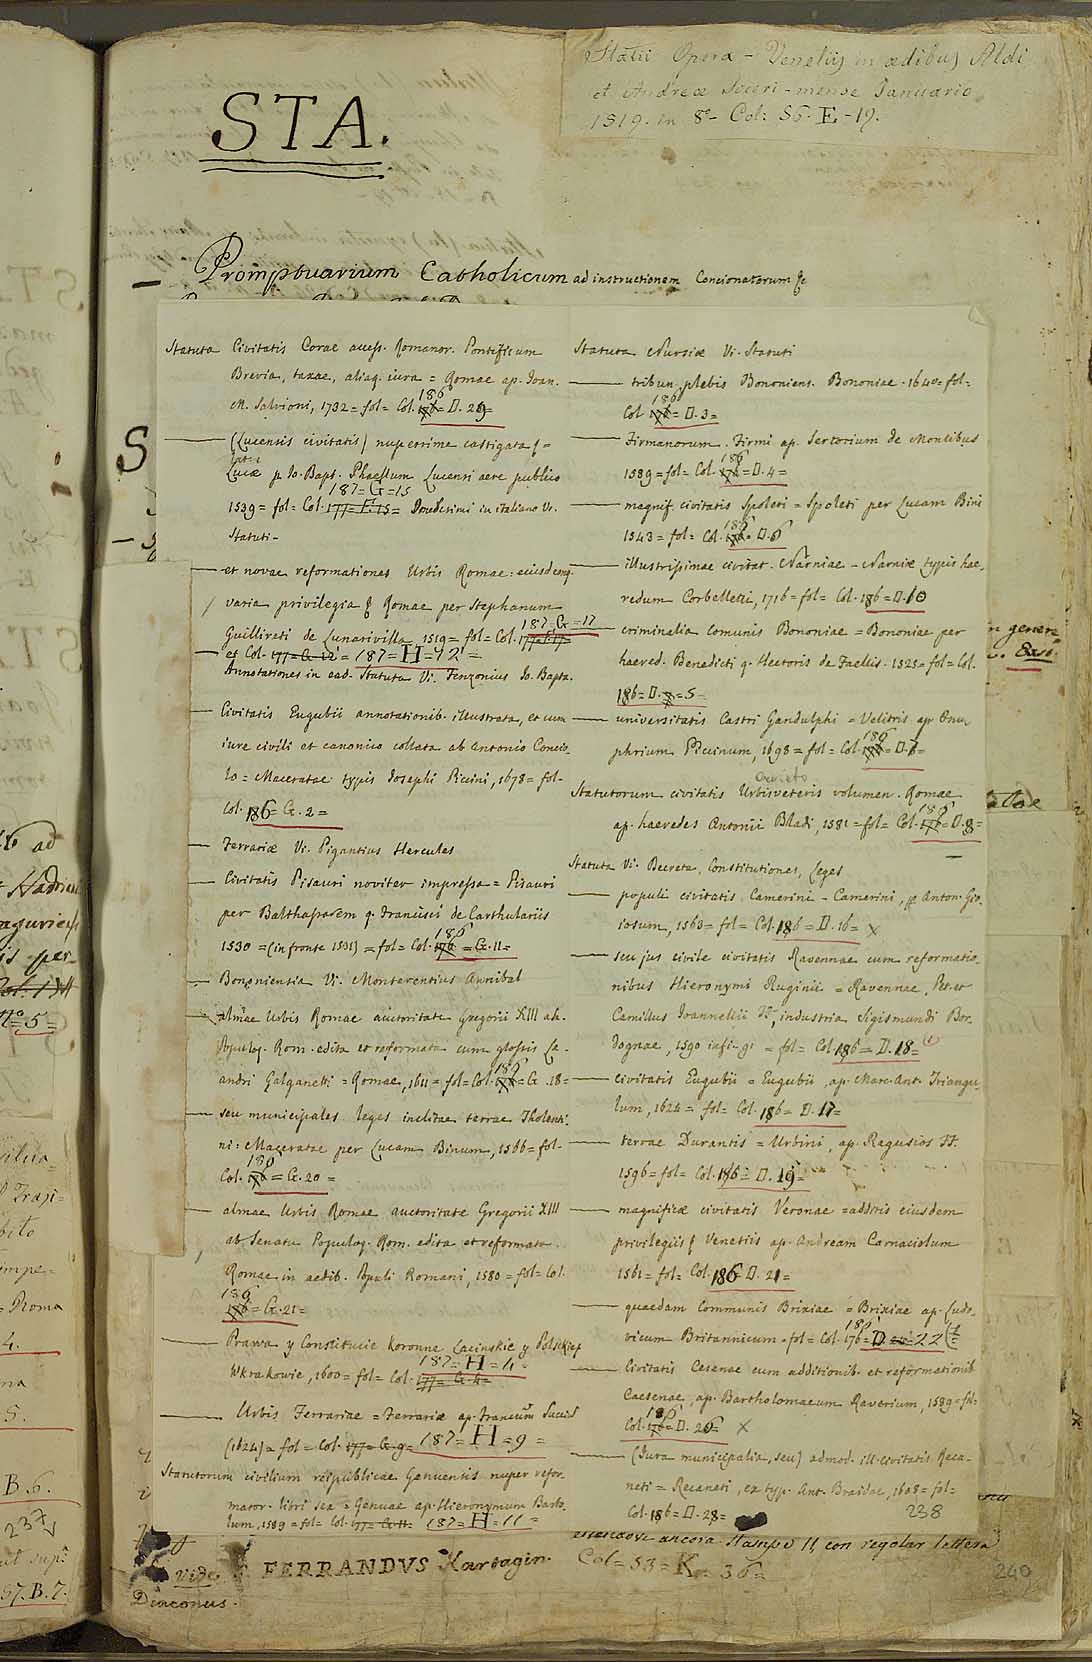 STA.
Statii Opera - Venetiis in ædibus Aldi
et Andreæ Soceri - mense Januario
1519. in 8° - Col: 56. E - 19.
Promptuarium Catholicum ad instructionem Concionatorum &c
Statuta Civitatis Corae access. Romanor. Pontificum
Brevia, taxae, aliaq. iura = Romae ap. Joan.
M. Salvioni, 1732 = fol = Col. 186 = D. 29 =
(Lucensis civitatis) nuperrime castigata
Lucæ p Jo. Bapt. Phaellum Lucensi aere publico
187 = G = 15
1539 = fol = Col. 177 = F. 15 = Imedesimi in italiano Vi.
Statuti -
et novae reformationes Urbis Romae: eiusdemq.
varia privilegia & Romae per Stephanum
Guillireti de Lunarivilla 1519 = fol = Col. 187 = G = 17
et Col. 177 = G. 12 = 187 = H = 12 =
Annotationes in ead. Statuta Vi. Fenzonius Jo. Bapta.
Civitatis Eugubii annotationib. illustrata, et cum
iure civili et canonico collata ab Antonio Concio-
lo = Maceratae typis Josephi Piccini, 1678 = fol -
Col. 186 = G. 2 =
Ferrariæ Vi. Pigantius Hercules
Civitatis Pisauri noviter impressa = Pisauri
per Balthassarem q. Francisci de Carthulariis
1530 = (in fronte 1531) = fol = Col. 186 = G. 11 =
Bononiensia Vi. Monterentius Annibal
almae Urbis Romae auctoritate Gregorii XIII a h.
Populoq. Rom. edita et reformata cum glossis Le-
andri Galganetti = Romae, 1611 = fol = Col. 186 = G. 18 =
seu municipales leges inclitae terrae Tholenti-
ni: Maceratae per Lucam Binum, 1566 = fol -
Col. 186 = G. 20 =
almae Urbis Romae auctoritate Gregorii XIII
ab Senatu Populoq. Rom. edita et reformata.
Romae in aedib. Populi Romani, 1580 = fol = Col.
186 = G. 21 =
Prawa y Constitucie Koronne Lacinskie y Polskie
187 = H = 4 =
Wkrakowie, 1600 = fol = Col. 177 = G. 4 =
Urbis Ferrariae = Ferrariæ ap. Francum Succium
(1624) = fol = Col. 177 = G. 9 = 187 = H = 9 =
Statutorum civilium reipublicae Genuensis nuper refor-
mator. libri sex = Genuae ap. Hieronymum Barto-
lum, 1589 = fol = Col. 177 = G. 11 = 187 = H = 11 =
Statuta Nursiæ Vi. Statuti
tribun. plebis Bononiens. Bononiae. 1640 = fol =
Col. 186 = D. 3 =
Firmanorum. Firmi ap. Sertorium de Montibus
1589 = fol = Col. 186 = D. 4 =
magnif. civitatis Spoleti = Spoleti per Lucam Bini
1543 = fol = Col. 186 = D. 6
illustrissimae civitat. Narniae - Narniæ typis hae-
redum Corbelletti, 1716 = fol = Col. 186 = D. 10
criminalia comunis Bononiae = Bononiae per
haered. Benedicti q. Hectoris de Faellis. 1525 = fol = Col.
186 = D. = 5 -
universitatis Castri Gandulphi = Velitris ap. Onu-
phrium Piccinum, 1698 = fol = Col. 186 = D. 7 =
Orvieto
Statutorum civitatis Urbisveteris volumen. Romae
ap. haeredes Antonii Bladi, 1581 = fol = Col. 186 = D. 8 =
Statuta Vi. Decreta, Constitutiones, Leges
populi civitatis Camerini - Camerini, p Anton. Gio-
iosum, 1563 = fol = Col. 186 = D. 16 = X
seu jus civile civitatis Ravennae cum reformatio-
nibus Hieronymi Ruginii = Ravennae, Pet. et
Camillus Joannellii FF, industria Sigismundi Bor-
dognae, 1590 = fol = Col. 186 = D. 18 = (1)
civitatis Eugubii = Eugubii, ap. Marc. Ant. Triangu-
lum, 1624 = fol = Col. 186 = D. 17 =
terrae Durantis = Urbini, ap. Ragusios FF.
1596 = fol = Col. 186 = D. 19 =
magnificæ civitatis Veronae = additis eiusdem
privilegiis & Venetiis ap. Andream Carnaciolum
1561 = fol = Col. 186 D. 21 =
quaedam Communis Brixiae = Brixiae ap. Ludo-
vicum Britannicum = fol = Col. 186 = D = 22
Civitatis Cesenae cum additionib. et reformationib.
Caesenae, ap. Bartholomaeum Raverium, 1589 = fol =
Col. 186 = D. 26 = X
(Jura municipalia, seu) admod. ill. civitatis Reca-
neti = Recaneti, ex typ. Ant. Braidae, 1608 = fol =
Col. 186 = D. 28 =
238
essendove ancora Stampo 11, con regolar lettera
Vide FERRANDVS Kartagin. Col = 53 = K = 36 =
Diaconus.
240